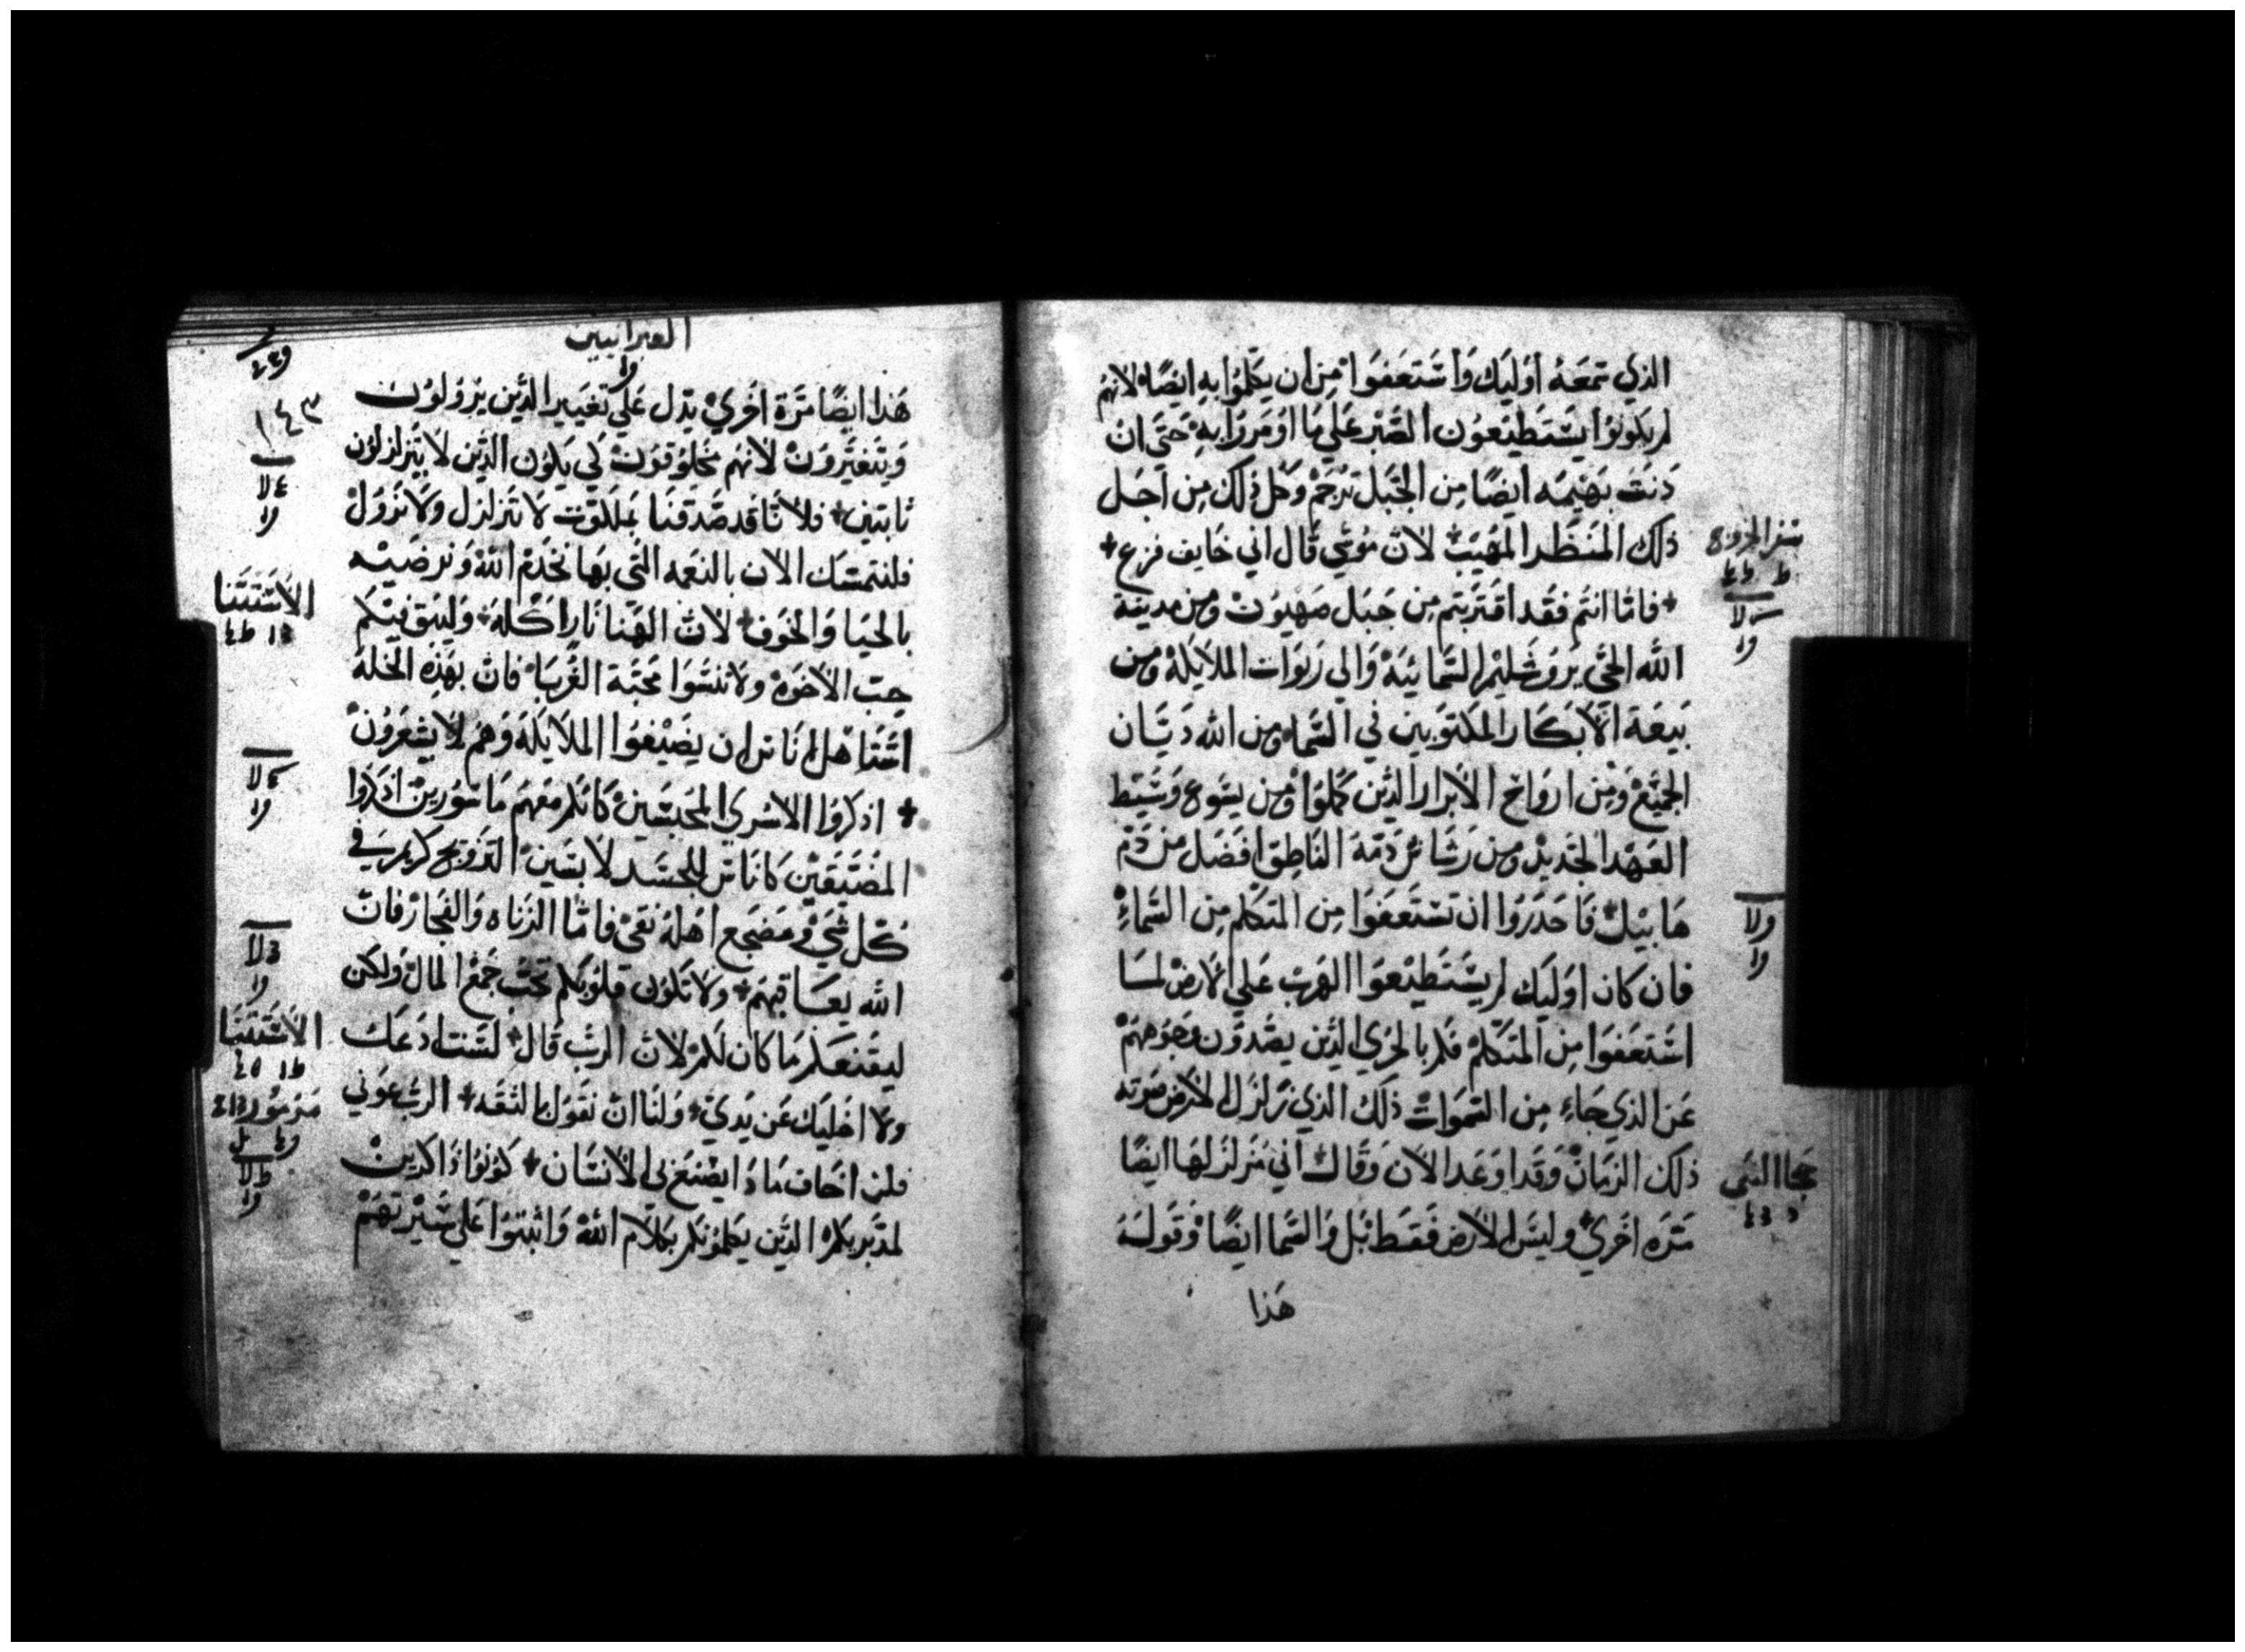 الذي سمعه اوليك واستعفوا من ان يكلموا به ايضا لانهم
لم يكونوا يستطيعون الصبر علي ما اومروا به حتي ان
دنت بهيمه ايضا من الجبل ترجم وكل ذلك من اجل
ذلك المنظر المهيب لان موسي قال اني خايف فزع +
+ فاما انتم فقد اقتربتم من جبل صهيون ومن مدينة
الله الحي يروشليم السمائية والي ربوات الملايكة ومن
بيعة الابكار المكتوبين في السماء ومن الله ديان
الجميع ومن ارواح الابرار الذين كملوا ومن يسوع وسيط
العهد الجديد ومن رشاش دمه الناطق افضل من دم
هابيل فاحدروا ان تستعفوا من المتكلم من السماء
فان كان اوليك لم يستطيعوا الهرب علي الارض لما
استعفوا من المتكلم فكم بالحري الذين يصدون وجوههم
عن الذي جاء من السموات ذلك الذي زلزل الارض صوته
ذلك الزمان وقد اوعد الان وقال اني مزلزلها ايضا
مرة اخري وليس الارض فقط بل والسما ايضا وقوله
هذا
سفر الخروج
حجا النبي
العبرانيين
١٤٣
هذا ايضا مرة اخري يدل علي تغيير الذين يزولون
ويتغيرون لانهم مخلوقون كي يكون الذين لا يتزلزلون
ثابتين + فلانا قد صدقنا بملكوت لا تتزلزل ولا تزول
فلنتمسك الان بالنعمه التي بها نخدم الله ونرضيه
بالحيا والخوف لان الهنا نار اكله + وليبق فيكم
حب الاخوه ولا تنسوا محبة الغربا فان بهذه الخلة
استاهل اناس ان يضيفوا الملايكة وهم لا يشعرون
+ اذكروا الاسري المحبسين كانكم معهم ماسورين اذكروا
المضيقين كاناس للجسد لابسين التزويج كريم في
كل شي ومضجع اهله نقي فاما الزناه والفجار فان
الله يعاقبهم + ولا تكون قلوبكم تحب جمع المال ولكن
ليقنعكم ما كان لكم لان الرب قال لست ادعك
ولا اخليك عن يدي + ولنا ان نقول بالثقه + الرب عوني
فلن اخاف ماذا يصنع بي الانسان + كونوا ذاكرين
لمدبريكم الذين يكلمونكم بكلام الله واثبتوا علي سيرتهم
الاستثنا
الاستثنا
مزمور